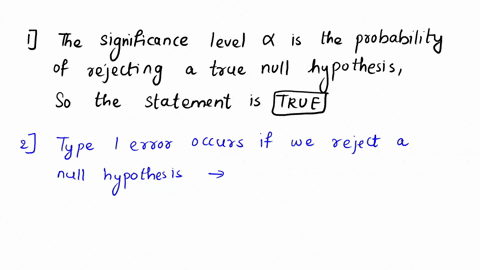 1] The significance level α is the probability
of rejecting a true null hypothesis,
So the statement is TRUE
2] Type 1 error occurs if we reject a
null hypothesis →